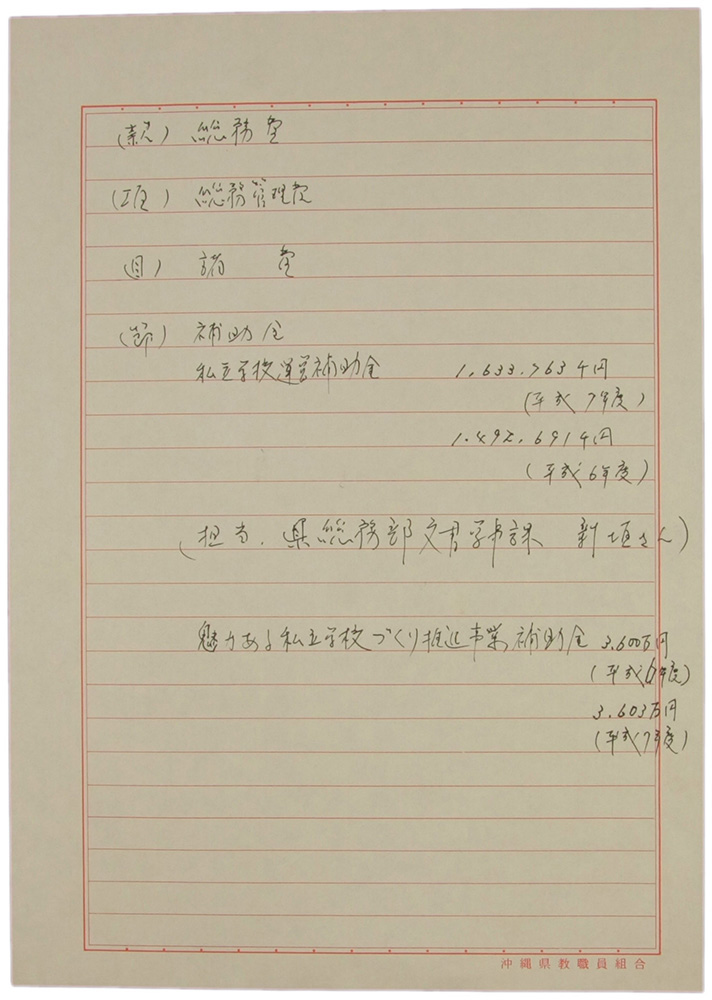 (款) 総務費
(項) 総務管理費
(目) 諸 費
(節) 補助金
私立学校運営補助金 1,633,763千円
(平成7年度)
1.492,691千円
(平成6年度)
(担当、県総務部文書学事課 新垣さん)
魅力ある私立学校づくり推進事業補助金 3.600万円
(平成6年度)
3.603万円
(平成7年度)
沖縄県教職員組合